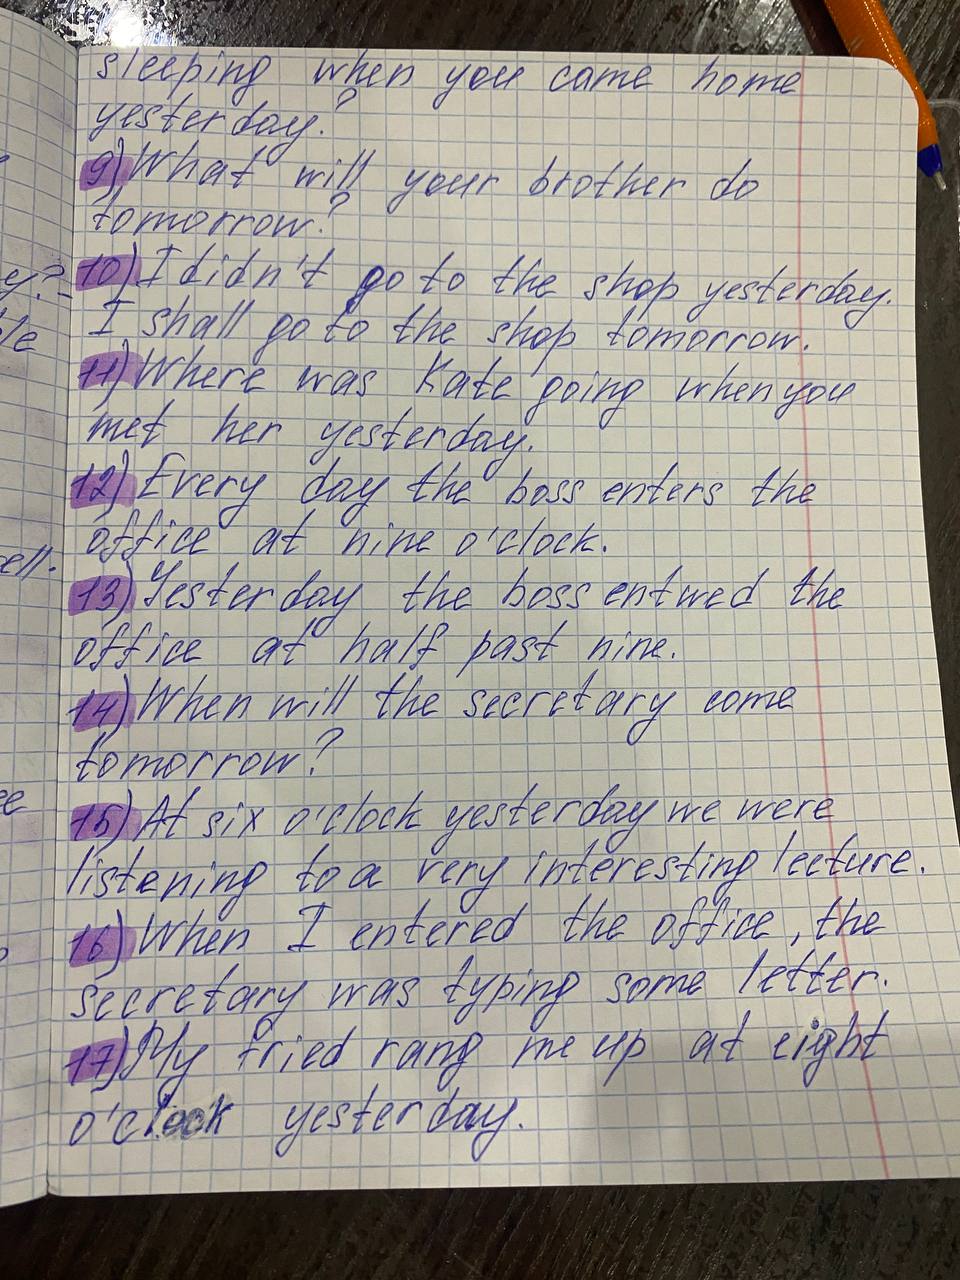 sleeping when you came home
yesterday?
9) What will your brother do
tomorrow?
10) I didn't go to the shop yesterday.
y?-
I shall go to the shop tomorrow.
le
11) Where was Kate going when you
met her yesterday.
12) Every day the boss enters the
office at nine o'clock.
ell.
13) Yesterday the boss entwed the
office at half past nine.
14) When will the secretary come
tomorrow?
ee
15) At six o'clock yesterday we were
listening to a very interesting lecture.
16) When I entered the office, the
secretary was typing some letter.
17) My fried rang me up at eight
o'clock yesterday.